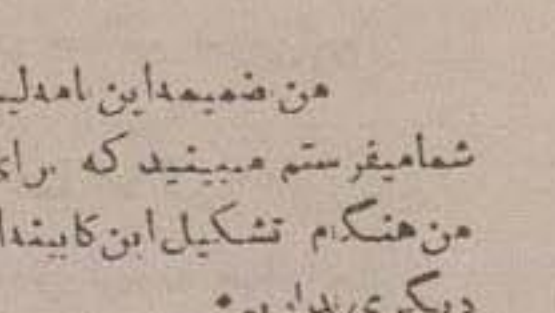 من ضمیمه این نامه لیـ
شما میفرستم میبینید که برای
من هنگام تشکیل این کابینه ا
دیگری ندارم.